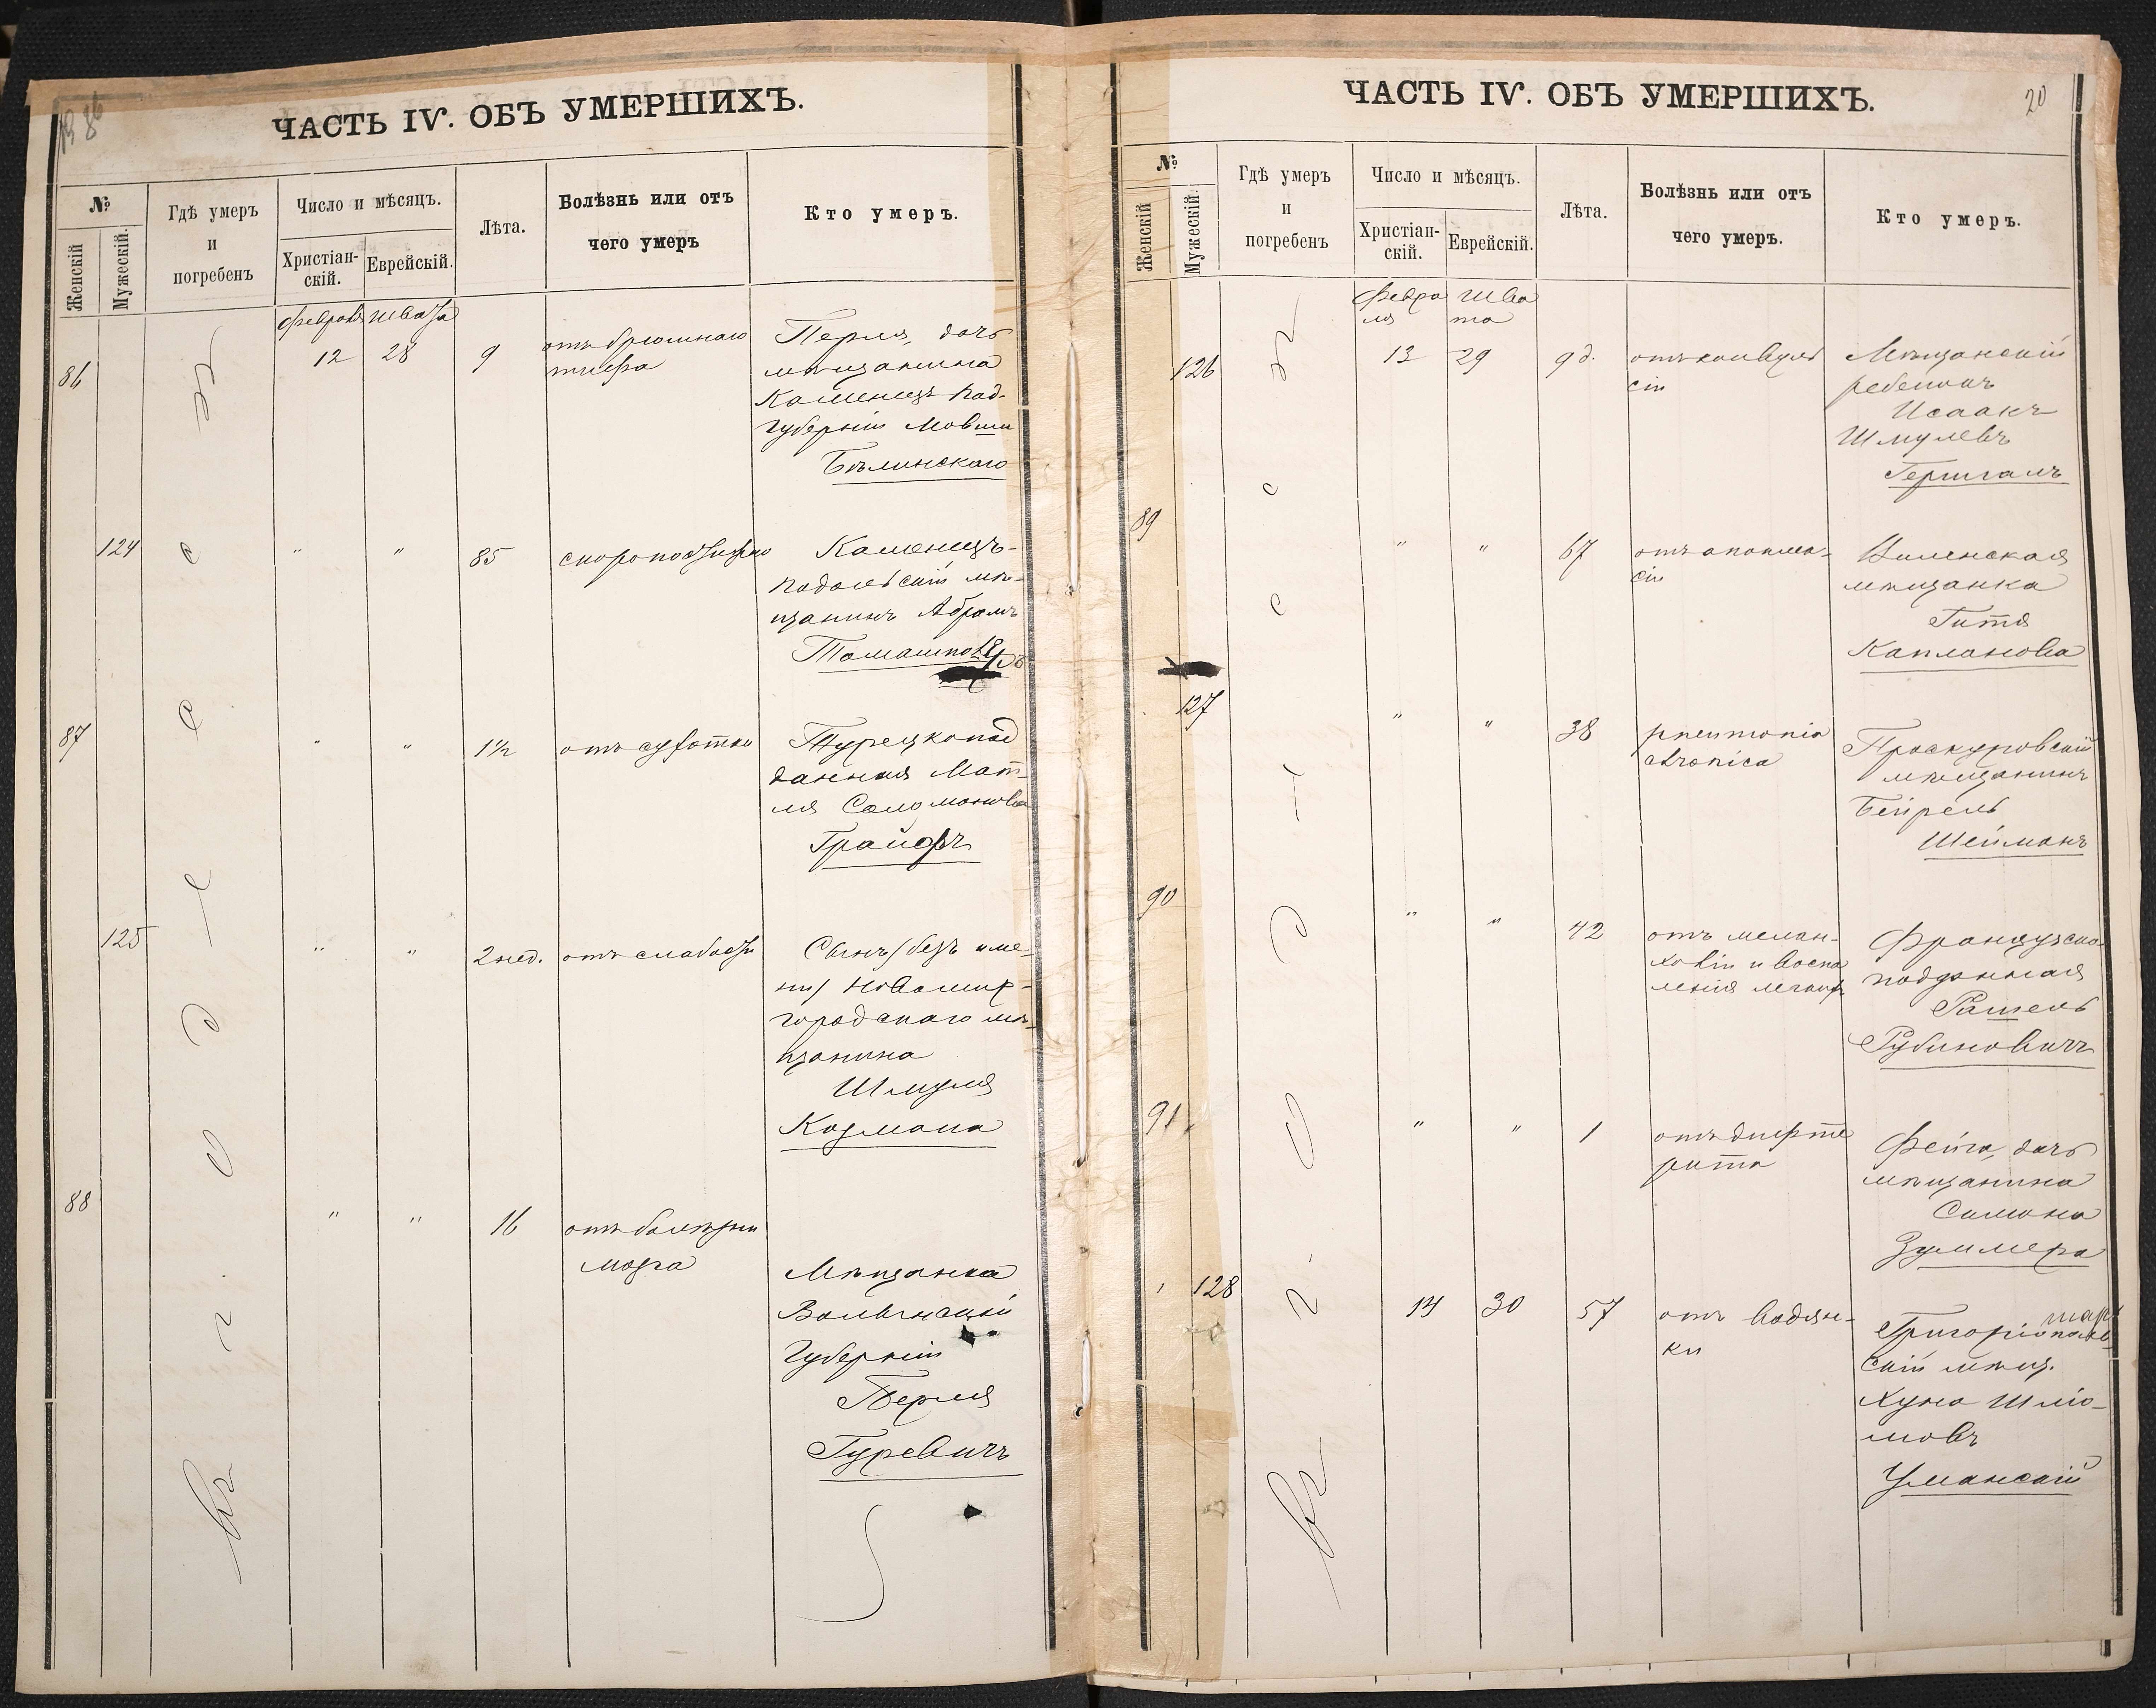 ЧАСТЬ IV. ОБЪ УМЕРШИХЪ.
№
Женскій
Мужескій.
Гдѣ умеръ
и
погребенъ
Число и мѣсяцъ.
Христіан-
скій.
Еврейскій.
Лѣта.
Болѣзнь или отъ
чего умеръ
Кто умеръ.
февраля
Швата
86
12
28
9
отъ брюшнаго
тифа
Перля, дочь
мѣщанина
Каменецъ Под-
губерніи Мовши
Бѣлинскаго
124
"
"
85
скоропостижно
Каменецъ-
подольскій мѣ-
щанинъ Абрамъ
87
"
"
1½
отъ сухотки
Турецкопод
данная Мат-
ля Соломонова
Грайфъ
125
"
"
2 нед.
отъ слабости
Сынъ (безъ име-
ни) Новомир-
городскаго мѣ-
щанина
Шмуля
Кормана
88
"
"
16
отъ болѣзни
мозга
Мѣщанка
Волынской
Губерніи
Перля
Гуревичъ
въ г. Одессѣ
ЧАСТЬ IV. ОБЪ УМЕРШИХЪ.
20
№
Женскій
Мужескій.
Гдѣ умеръ
и
погребенъ
Число и мѣсяцъ.
Христіан-
скій.
Еврейскій.
Лѣта.
Болѣзнь или отъ
чего умеръ.
Кто умеръ.
февра
ля
Шва
та
126
13
29
9 д.
отъ конвуль
сіи
Мѣщанскій
ребенокъ
Исаакъ
Шмулевъ
89
"
"
67
отъ апоплек-
сіи
Виленская
мѣщанка
Гитя
Капланова
127
"
"
38
pneumonia
chronica
Проскуровскій
мѣщанинъ
Бейрель
Шейманъ
90
"
"
42
отъ мелан-
холіи и воспа
ленія легкихъ
Французско-
подданная
Рашель
Рубиновичъ
91
"
"
1
отъ дифте
рита
Фейга, дочь
мѣщанина
Симона
Зуммера
128
14
30
57
отъ водян-
ки
Григоріополь
скій мѣщ.
Хуна Шлio-
мовъ
Уманскій
въ г. Одессѣ